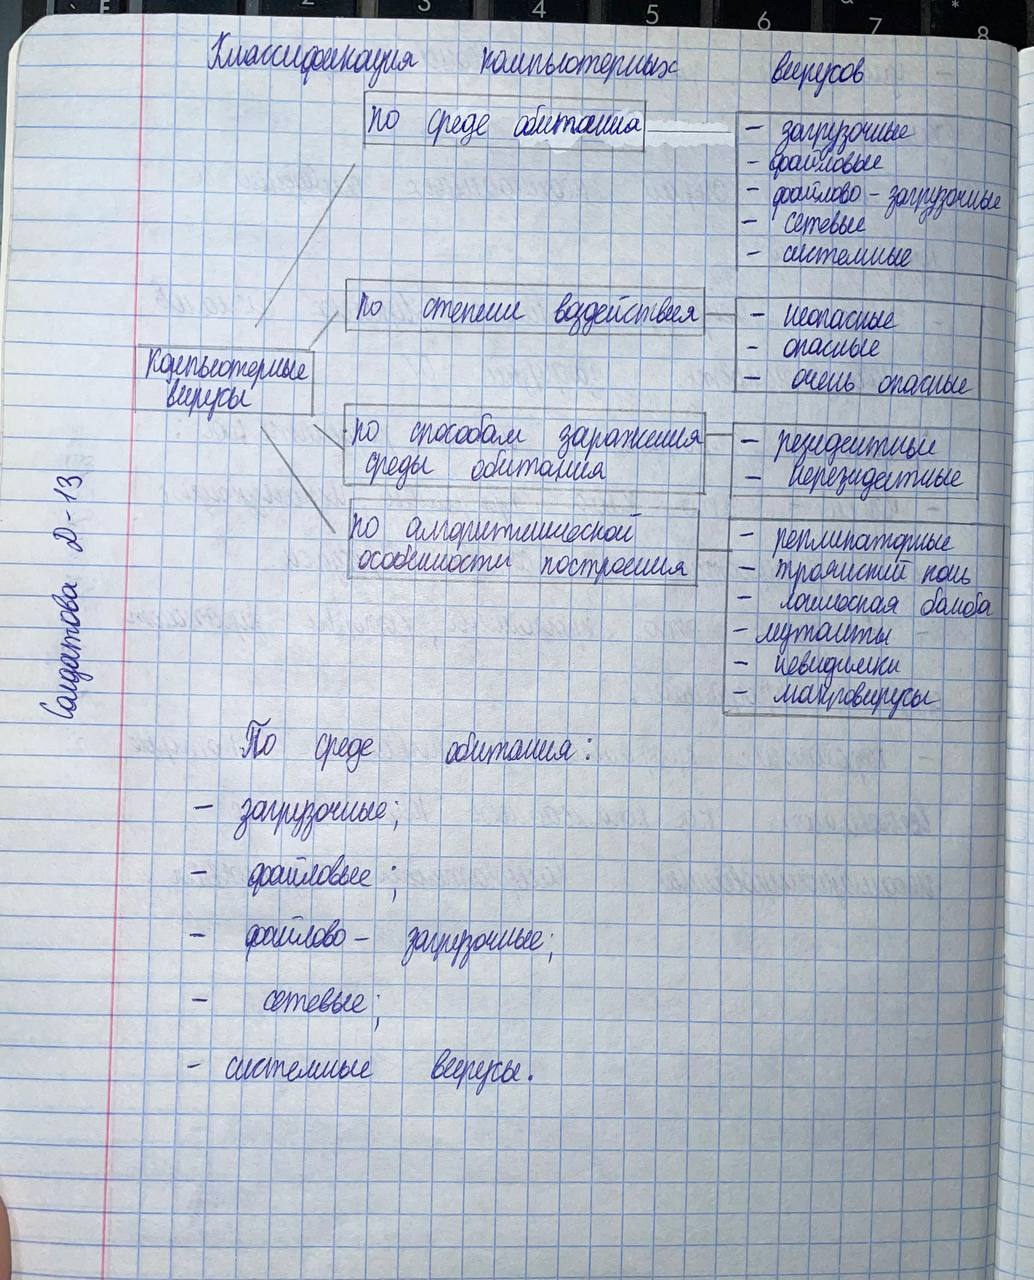 Классификация компьютерных вирусов
по среде обитания
- загрузочные
- файловые
- файлово-загрузочные
- сетевые
- системные
по степени воздействия
- неопасные
- опасные
- очень опасные
Компьютерные
вирусы
по способам заражения
среды обитания
- резидентные
- нерезидентные
по алгоритмической
особенности построения
- репликаторные
- троянский конь
- логическая бомба
- мутанты
- невидимки
- макровирусы
Солдатова Д-13
По среде обитания:
- загрузочные;
- файловые;
- файлово- загрузочные;
- сетевые;
- системные вирусы.